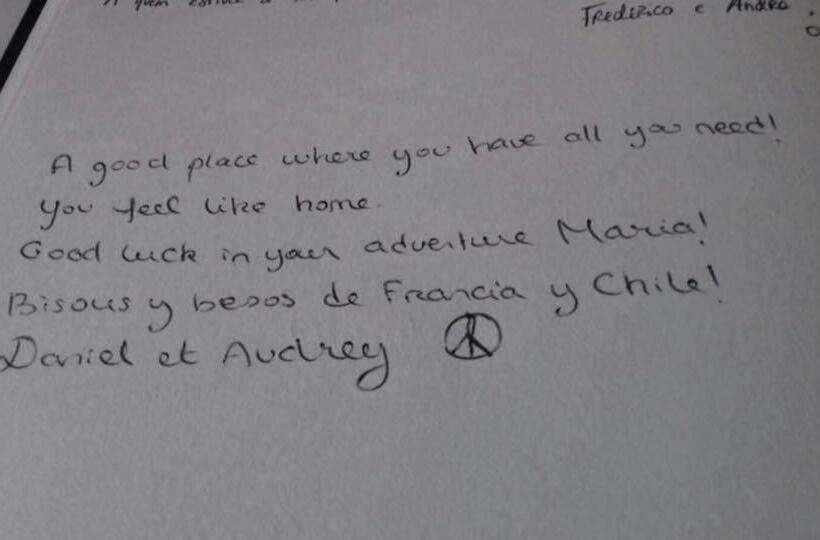 A quem
Frederico e Andrea
A good place where you have all you need!
You feel like home.
Good luck in your adventure Maria!
Bisous y besos de Francia y Chile!
Daniel et Audrey